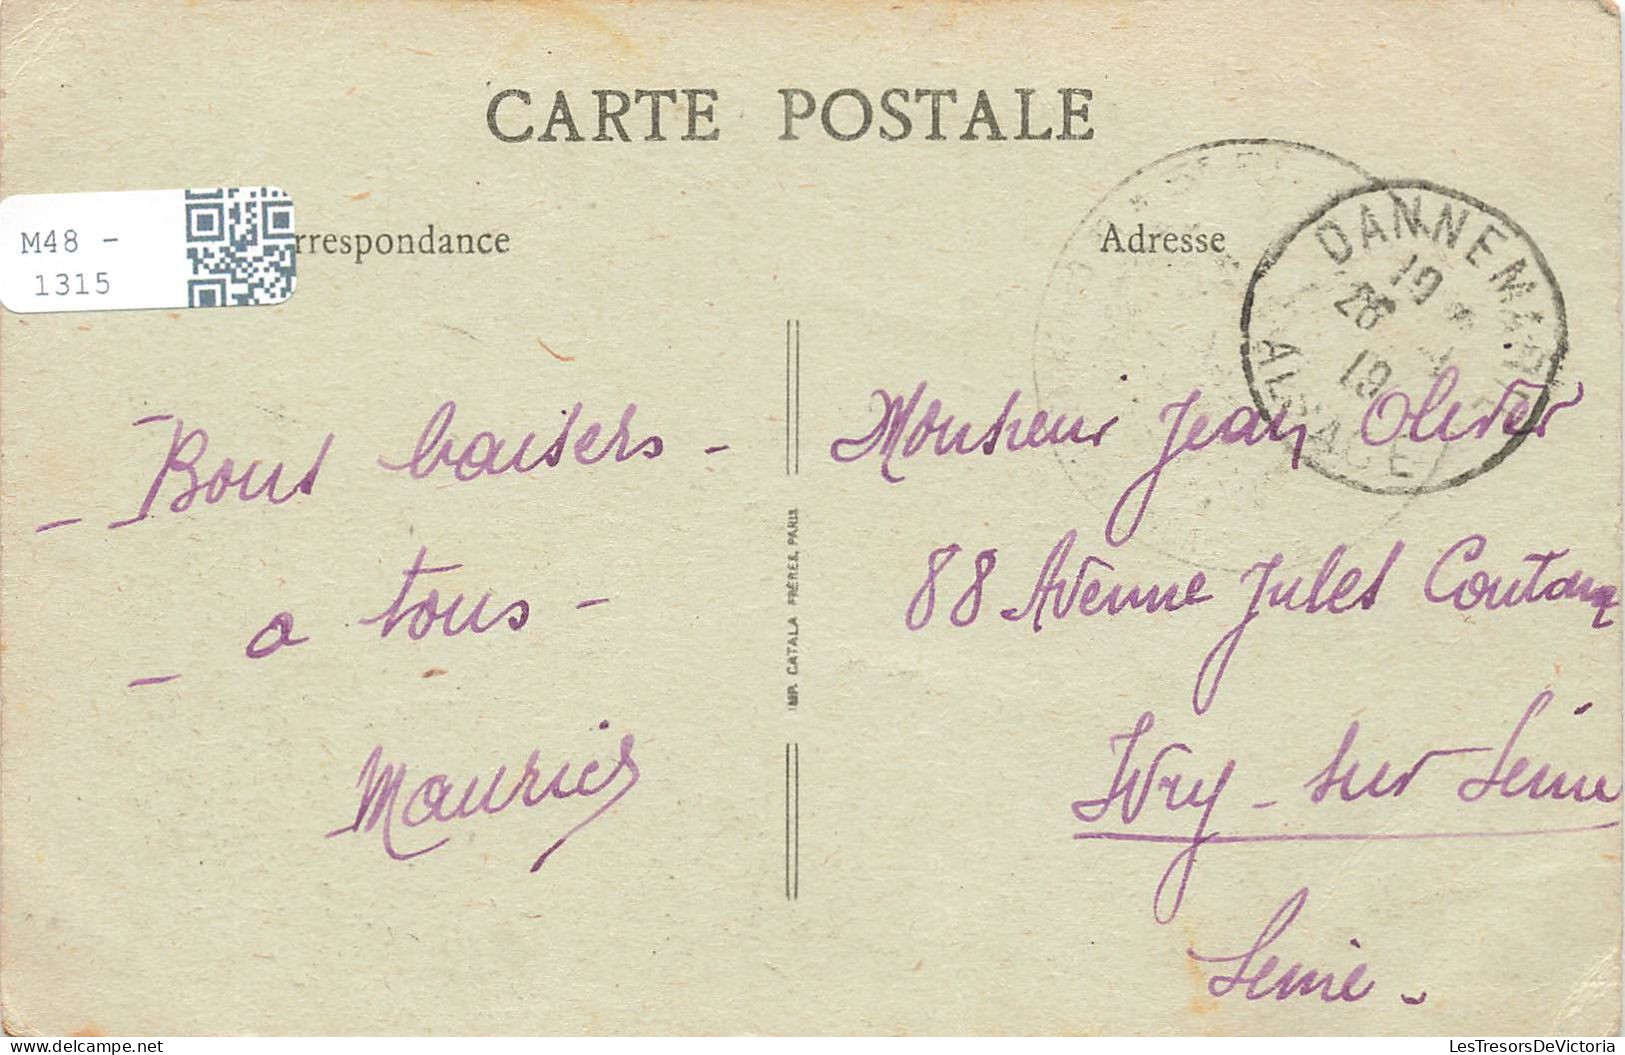 CARTE POSTALE
M48 -
1315
rrespondance
Adresse
DANNEMARIE
19 *
26
19
ALSACE
- Bons baisers -
- a tous -
Maurice
IMP. CATALA FRÈRES, PARIS
Monsieur Jean Olivier
88 Avenue Jules Coutant
Ivry - sur Seine
Seine -
https://www.delcampe.net
LesTresorsDeVictoria